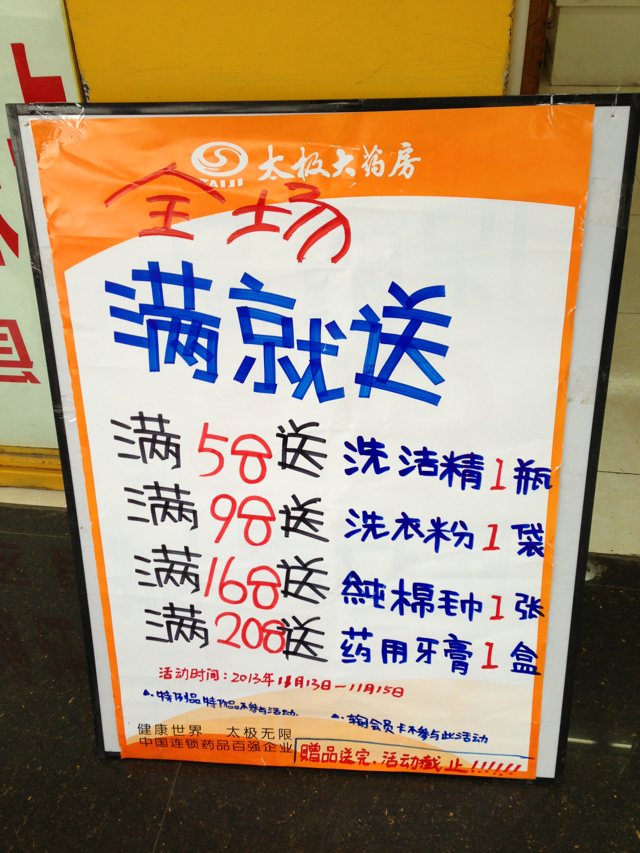 TAIJI 太极大药房
全场
满就送
满58送 洗洁精1瓶
满98送 洗衣粉1袋
满168送 純棉毛巾1张
满208送 药用牙膏1盒
活动时间:2013年11月13日—11月15日
特价品特例品不参与活动.
会员卡不参与此活动
健康世界 太极无限
中国连锁药品百强企业
赠品送完,活动截止!!!!!!